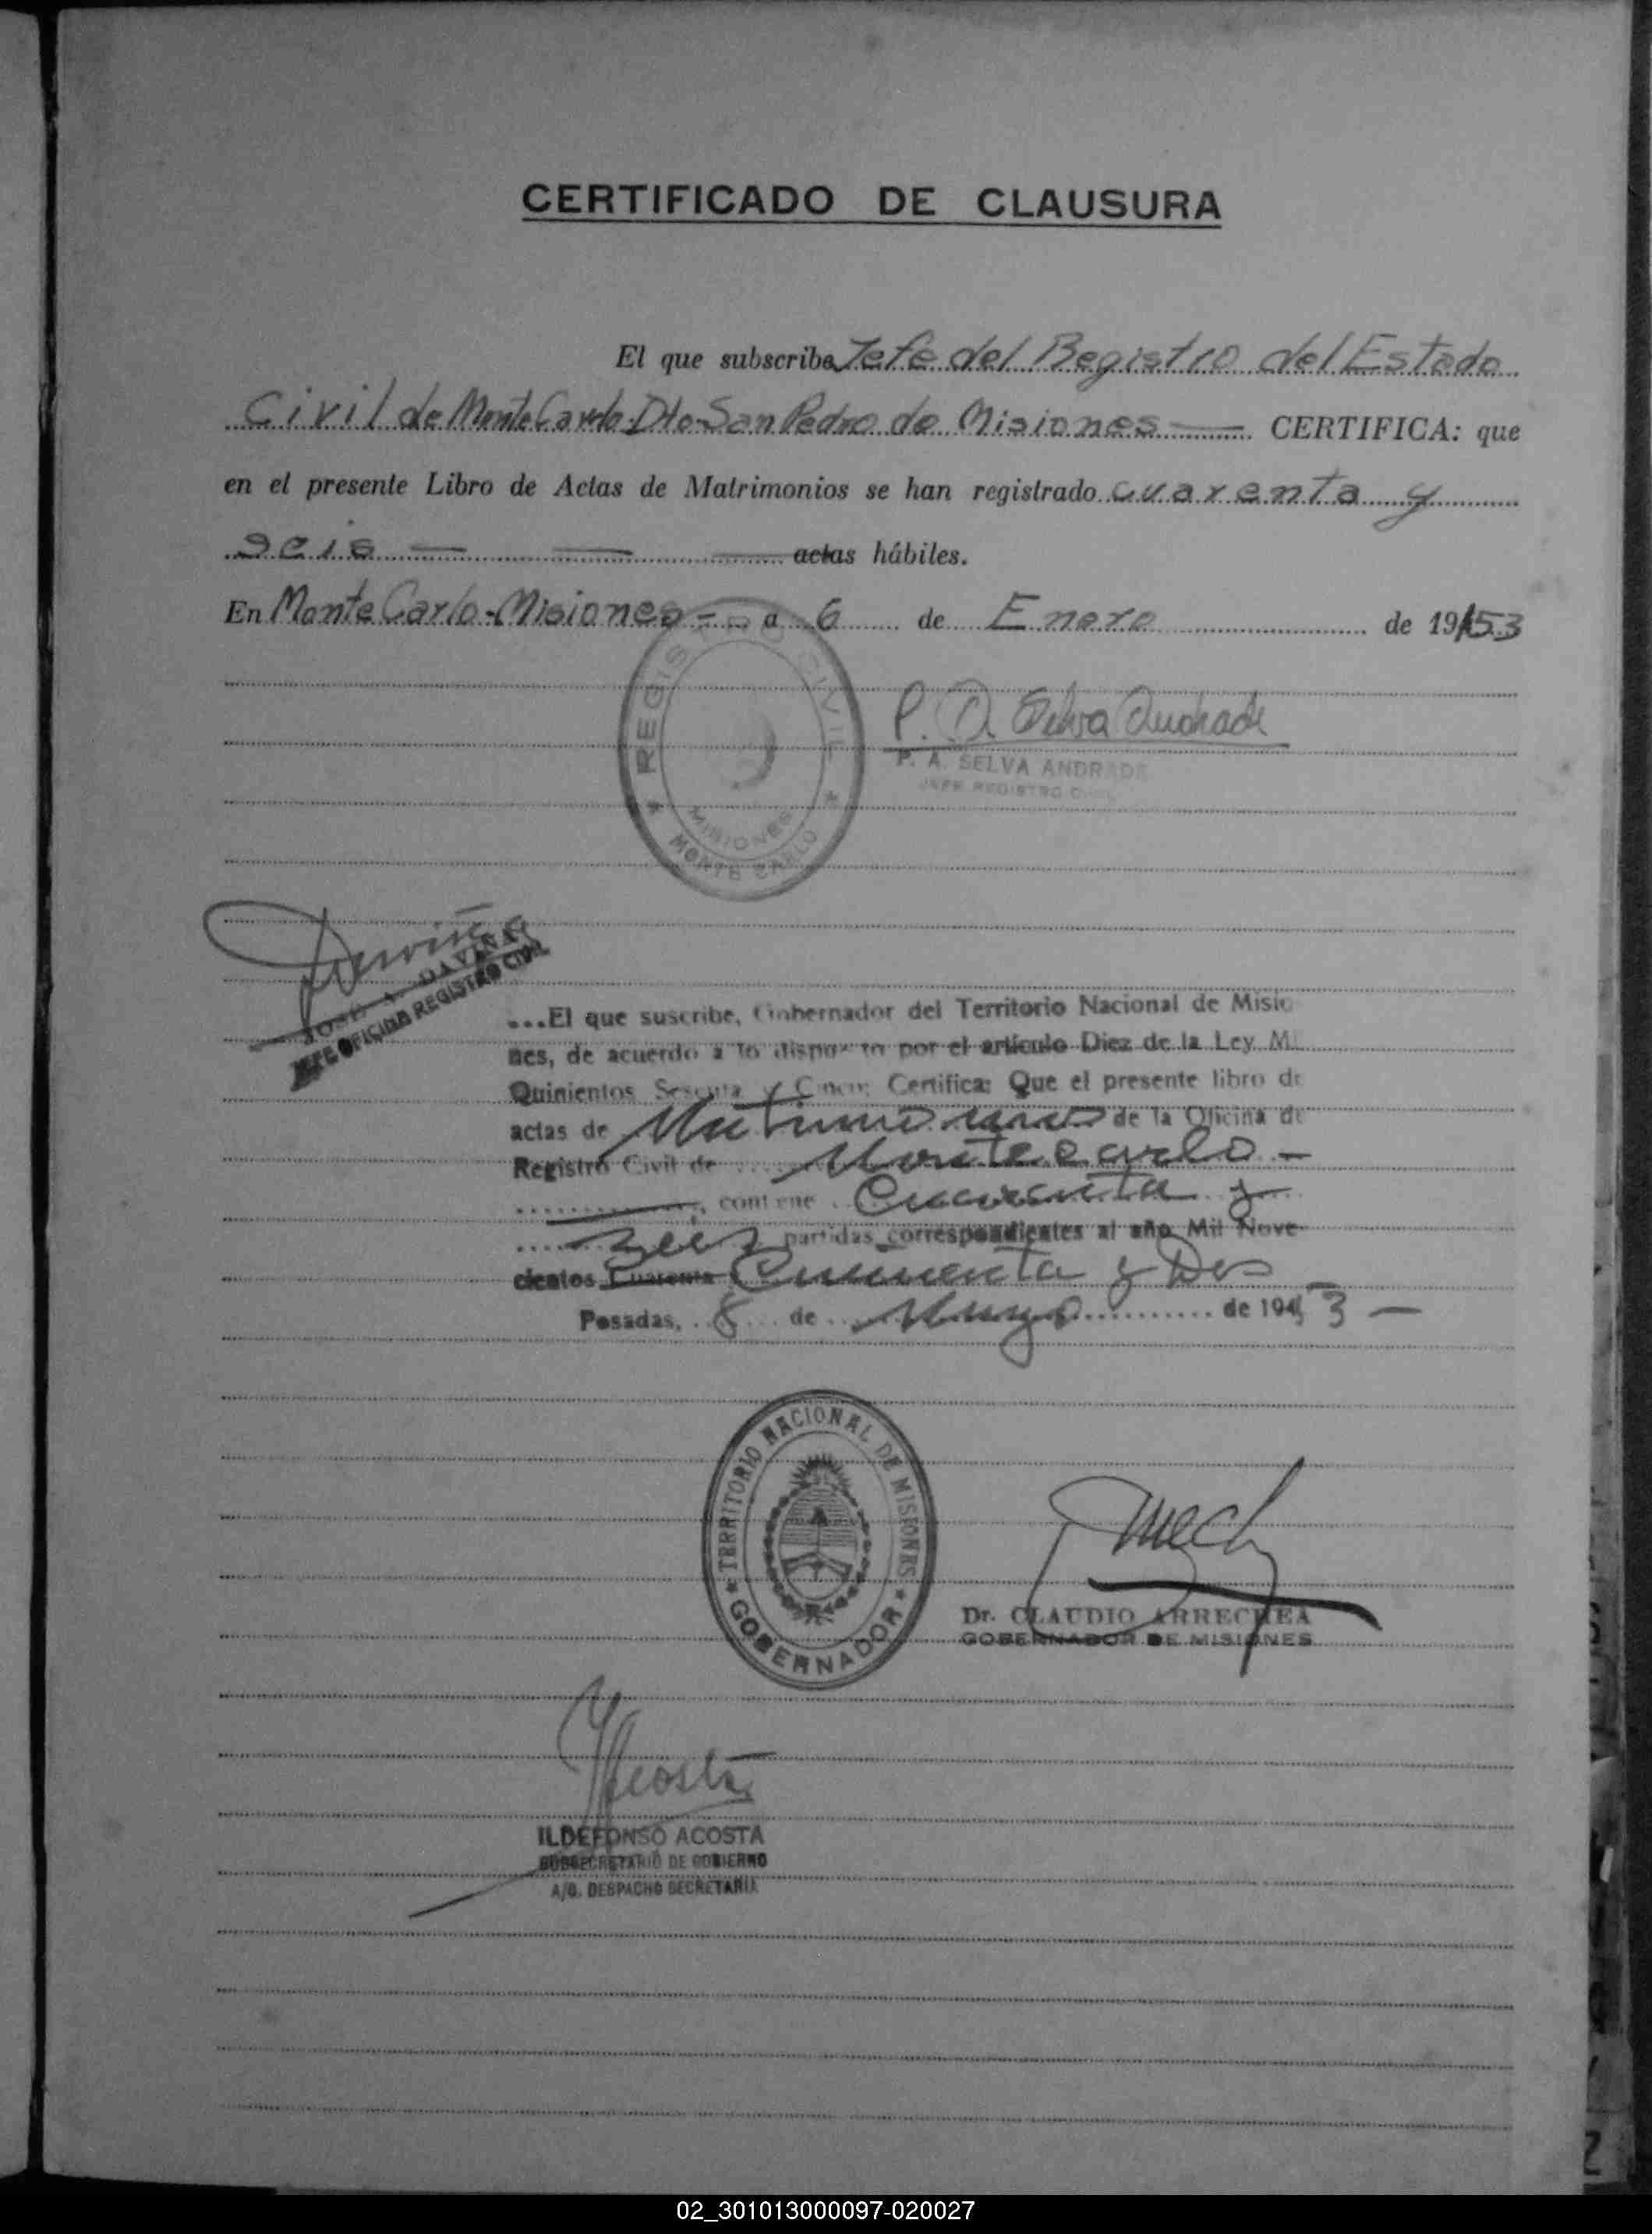 CERTIFICADO DE CLAUSURA
El que subscribe Jefe del Registro del Estado
Civil de Monte Carlo-Dto San Pedro de Misiones — CERTIFICA: que
en el presente Libro de Actas de Matrimonios se han registrado cuarenta y
seis — — — actas hábiles.
En Monte Carlo-Misiones - - a 6 de Enero de 1953
REGISTRO CIVIL
MISIONES
MONTE CARLO
P. A. Selva Andrade
P. A. SELVA ANDRADE
JEFE REGISTRO CIVIL
JEFE OFICINA REGISTRO CIVIL
...El que suscribe, Gobernador del Territorio Nacional de Misio
nes, de acuerdo a lo dispuesto por el artículo Diez de la Ley Mil
Quinientos Sesenta y Cinco; Certifica: Que el presente libro de
actas de Matrimonios de la Oficina de
Registro Civil de Montecarlo -
contiene Cuarenta y
seis partidas correspondientes al año Mil Nove-
cientos Cuarenta Cincuenta y Dos
Posadas, 8 de Mayo de 1953 -
TERRITORIO NACIONAL DE MISIONES
GOBERNADOR
Dr. CLAUDIO ARRECHEA
GOBERNADOR DE MISIONES
Acosta
ILDEFONSO ACOSTA
SUBSECRETARIO DE GOBIERNO
A/C. DESPACHO SECRETARIA
02_301013000097-020027